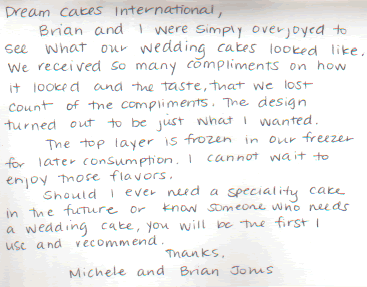 Dream Cakes International,
Brian and I were simply overjoyed to
see what our wedding cakes looked like.
We received so many compliments on how
it looked and the taste, that we lost
count of the compliments. The design
turned out to be just what I wanted.
The top layer is frozen in our freezer
for later consumption. I cannot wait to
enjoy those flavors.
Should I ever need a speciality cake
in the future or know someone who needs
a wedding cake, you will be the first I
use and recommend.
Thanks,
Michele and Brian Jones